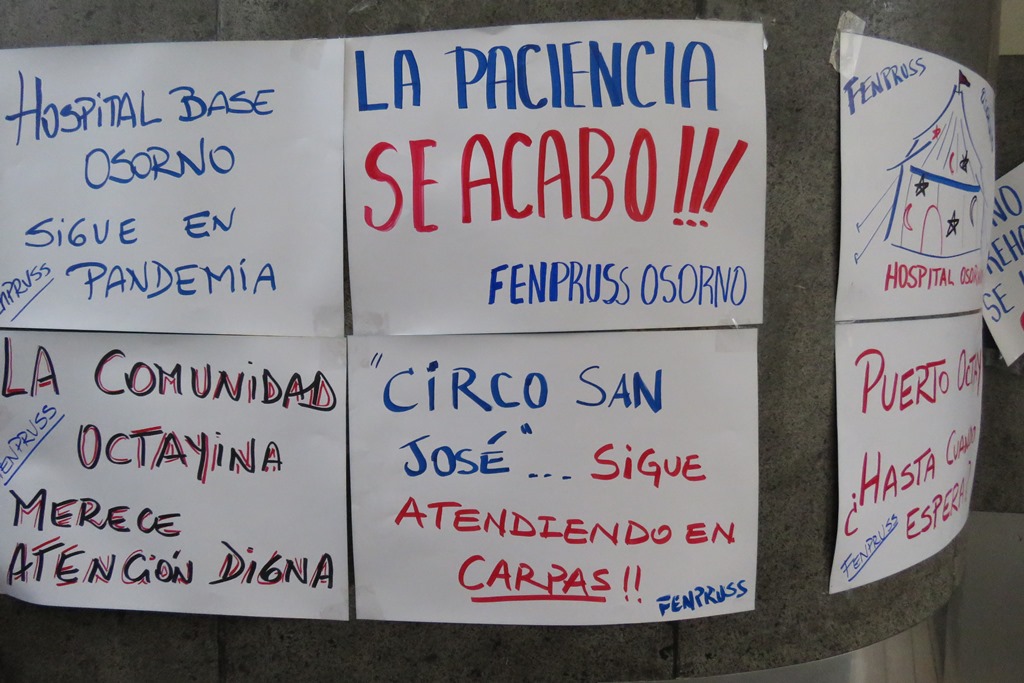 HOSPITAL BASE
OSORNO
SIGUE EN
PANDEMÍA
LA PACIENCIA
SE ACABO!!!
FENPRUSS OSORNO
FENPRUSS
HOSPITAL
LA COMUNIDAD
OCTAYINA
MERECE
ATENCIÓN DIGNA
"CIRCO SAN
JOSÉ"... SIGUE
ATENDIENDO EN
CARPAS!!
FENPRUSS
PUERTO
¿HASTA CUANDO
ESPERA?
FENPRUSS
NO
SE